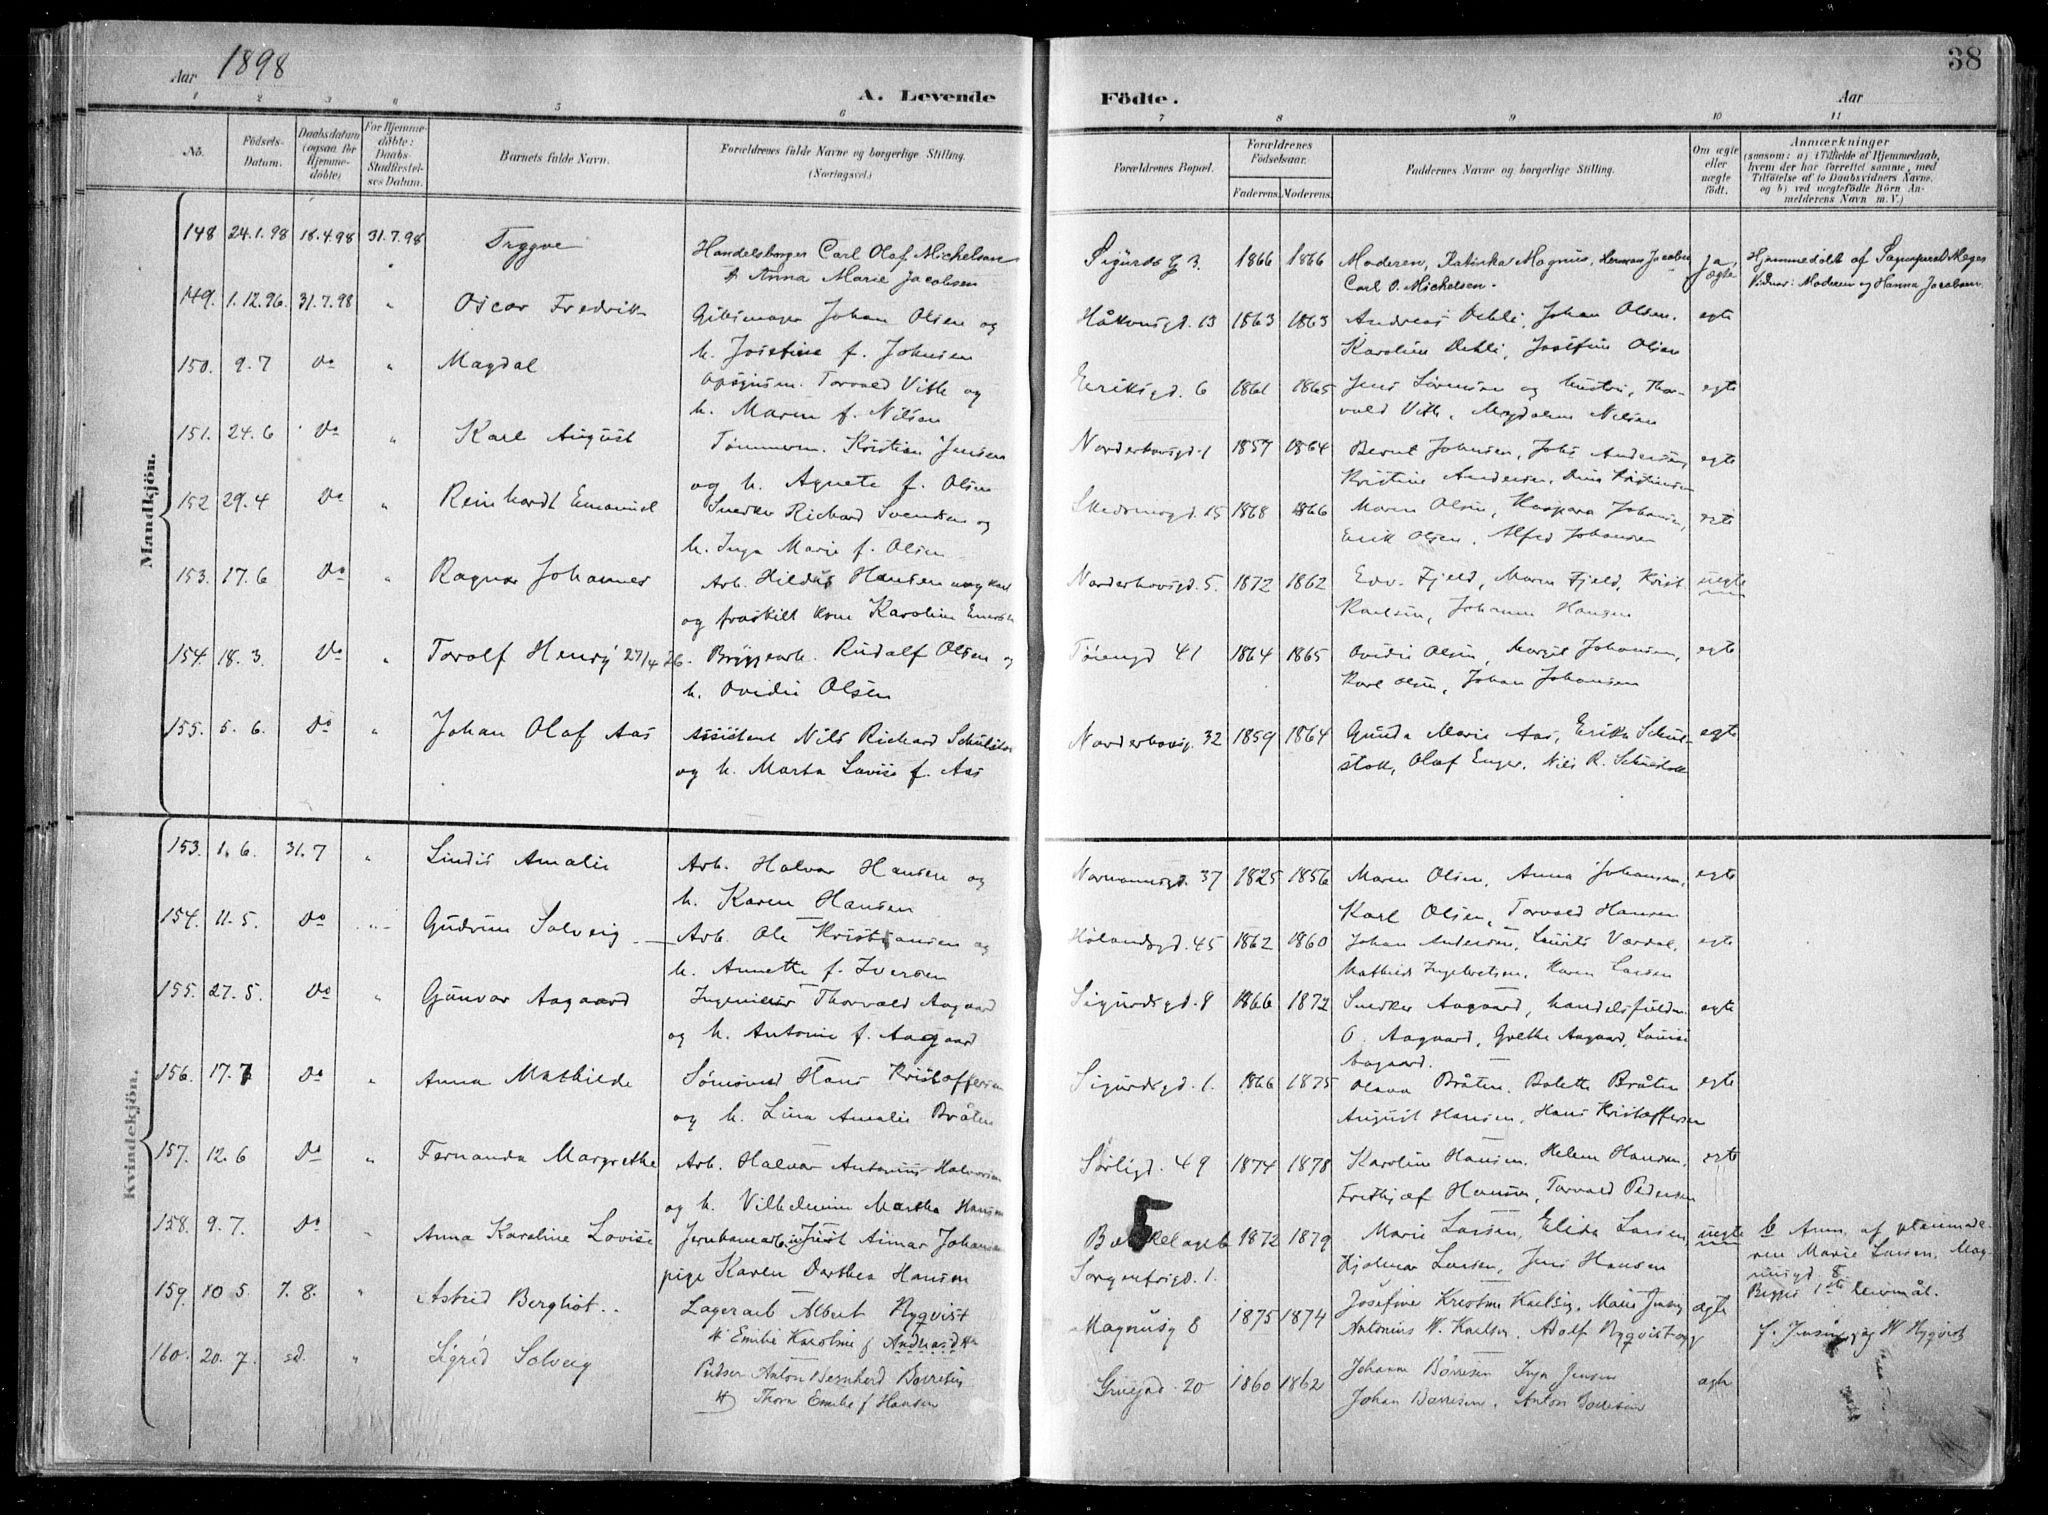 Aar 1898
A. Levende Födte.
Aar
38
1 2 3 4 5 6 7 8 9 10 11
No.
Födsels-Datum.
Daabsdatum (ogsaa for Hjemmedøbte)
For Hjemmedøbte: Daabs-Stadfæstelses Datum.
Barnets fulde Navn.
Forældrenes fulde Navne og borgerlige Stilling. (Næringsvei.)
Forældrenes Bopæl.
Forældrenes Födselsaar.
Faderens. Moderens.
Faddernes Navne og borgerlige Stilling.
Om ægte eller uægte födt.
Anmærkninger
(saasom: a) i Tilfælde af Hjemmedaab, hvem der har forrettet samme, med Tilföielse af to Daabsvidners Navne, og b) ved uægtefödte Börn Anmelderens Navn m. V.)
Mandkjön.
148 24.1.98 18.4.98 31.7.98 Trygve Handelsborger Carl Olaf Michelsen Sigurds g 3. 1866 1866 Moderen, Katinka Magnus, Herman Jacobsen ja, Hjemmedöbt af
& Anna Marie Jacobsen Carl O. Michelsen. ægte Vidner: Moderen og Hanna Jacobsen.
149. 1.12.96. 31.7.98 " Oscar Fredrik Gibsmager Johan Olsen og Håkonsgd. 13 1863 1863 Andreas Dehli, Johan Olsen. egte
h. Josefine f. Johnsen Karoline Dehli, Josefine Olsen
150. 9.7 Do " Magdal Opsynsm. Torvald Vith og Eiriksgd. 6 1861 1865 Jens Sörensen og hustru, Thor- egte
h. Maren f. Nilsen vald Vith, Magdalene Nilsen
151. 24.6 Do " Karl August Tømmerm. Kristian Jensen Norderhovsgd. 1 1857 1864 Bernt Johnsen, Johs Andersen, egte
og h. Agnete f. Olsen Kristine Andersen, Dina Kristiansen
152 29.4 Do " Reinhardt Emanuel Snedker Richard Svendsen og Skedsmogd. 15 1868 1866 Maren Olsen, Kaspara Johansen, egte
h. Inga Marie f. Olsen Erik Olsen, Alfred Johansen
153. 17.6 Do " Ragnar Johannes Arb. Hildus Hansen ungkarl Norderhovsgd. 5. 1872 1862 Edv. Fjeld, Maren Fjeld, Krist. uegte
og fraskilt kone Karoline Karlsen, Johanne Hansen
154. 18.3. Do " Torolf Henry 27/4 26. Bryggearb. Rudolf Olsen og Töiengd 41 1864 1865 Ovidie Olsen, Margit Johansen, egte
h. Ovidie Olsen Karl Olsen, Johan Johansen
155. 5.6. Do " Johan Olaf Aas Assistent Nils Richard Norderhovsg. 32 1859 1864 Gunda Marie Aas, Erika Schul- egte
og h. Marta Lovise f. Aas stok, Olaf Enger, Nils R. Schulstok
Kvindekjön.
153. 1.6. 31.7 " Lindis Amalie Arb. Halvor Hansen og Normannsgd. 37 1825 1856 Maren Olsen, Anna Johansen, egte
h. Karen Hansen Karl Olsen, Torvald Hansen
154. 11.5. Do " Gudrun Solveig Arb. Ole Kristiansen og Hølandsgd. 45 1862 1860 Johan Andersen, Laurits Værdal, egte
h. Annette f. Iversen Mathilde Ingebretsen, Karen Larsen
155. 27.5. Do " Gunvor Aagaard Ingeniør Thorvald Aagaard Sigurdsgd. 8 1866 1872 Snedker Aagaard, handelsfuldm. egte
og h. Antonie f. Aagaard O. Aagaard, Grethe Aagaard, Louise
Aagaard.
156. 17.7 Do " Anna Mathilde Sömand Hans Kristoffersen Sigurdsgd. 1. 1866 1875 Olava Bråten, Bolette Bråten egte
og h. Lina Amalie Bråten August Hansen, Hans Kristoffersen
157. 12.6 Do " Fernanda Margrethe Arb. Halvor Antonius Halvorsen Sørligd. 49 1874 1878 Karoline Hansen, Helene Hansen, egte
og h. Vilhelmine Martha Hansen Frithjof Hansen, Torvald Pedersen
158. 9.7. Do " Anna Karoline Lovise Jernbanearb. Just Aimar Johansen Bækkelaget 1872 1879 Marie Larsen, Elida Larsen, uegte b Anm. af
pige Karen Dorthea Hansen Sorgenfrigd. 1. Hjalmar Larsen, Jens Hansen Marie Larsen, Mag-
nusgd. 8
Begges 1ste leiermål.
159. 10 5. 7.8. " Astrid Bergliot Lagerarb Albert Nyqvist Magnusg 8 1875 1874 Josefine Kristine Karlsen, Marie Jensen ægte f. Jensen W Nyqvist
H. Emilie Karoline f Andreasdtr Antonius W. Karlsen. Adolf Nyqvist
160. 20.7. sd. " Sigrid Solveig Pudser Anton Bernhard Børresen Grügd. 20 1860 1862 Johanne Børresen Inga Jensen ægte
H Thora Emilie f Hansen Johan Børresen. Anton Børresen